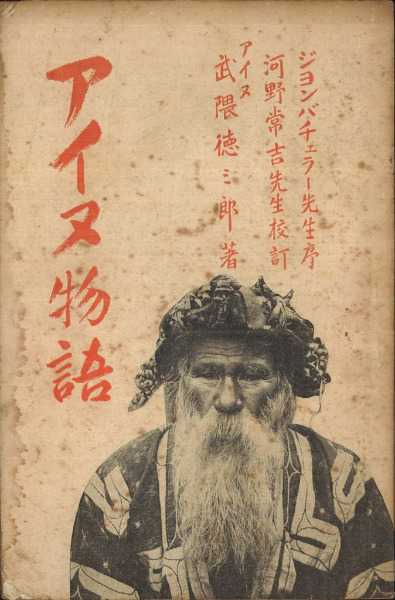 ジョンバチェラー先生序
河野常吉先生校訂
アイヌ
武隈徳三郎著
アイヌ物語